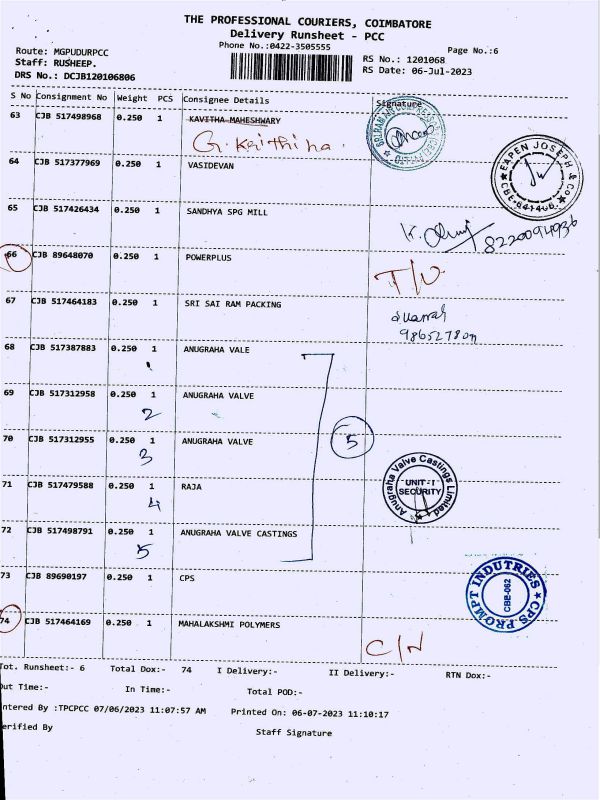 THE PROFESSIONAL COURIERS, COIMBATORE
Delivery Runsheet - PCC
Phone No.:0422-3505555
Page No.:6
Route: MGPUDURPCC
Staff: RUSHEEP.
DRS No.: DCJB120106806
RS No.: 1201068
RS Date: 06-Jul-2023
S No Consignment No Weight PCS Consignee Details Signature
63 CJB 517498968 0.250 1 KAVITHA MAHESHWARY
64 CJB 517377969 0.250 1 VASIDEVAN
EAPEN JOSEPH & Co
65 CJB 517426434 0.250 1 SANDHYA SPG MILL
8220094936
66 CJB 89648070 0.250 1 POWERPLUS
67 CJB 517464183 0.250 1 SRI SAI RAM PACKING
68 CJB 517387883 0.250 1 ANUGRAHA VALE
1
69 CJB 517312958 0.250 1 ANUGRAHA VALVE
2
70 CJB 517312955 0.250 1 ANUGRAHA VALVE
3 5
71 CJB 517479588 0.250 1 RAJA
4
Anugraha Valve Castings Limited
UNIT-I
SECURITY
72 CJB 517498791 0.250 1 ANUGRAHA VALVE CASTINGS
5
73 CJB 89690197 0.250 1 CPS
CPS PROMPT INDUTRIES
CBE-062
74 CJB 517464169 0.250 1 MAHALAKSHMI POLYMERS
C/N
Tot. Runsheet:- 6 Total Dox:- 74 I Delivery:- II Delivery:- RTN Dox:-
Out Time:- In Time:- Total POD:-
ntered By :TPCPCC 07/06/2023 11:07:57 AM Printed On: 06-07-2023 11:10:17
erified By Staff Signature